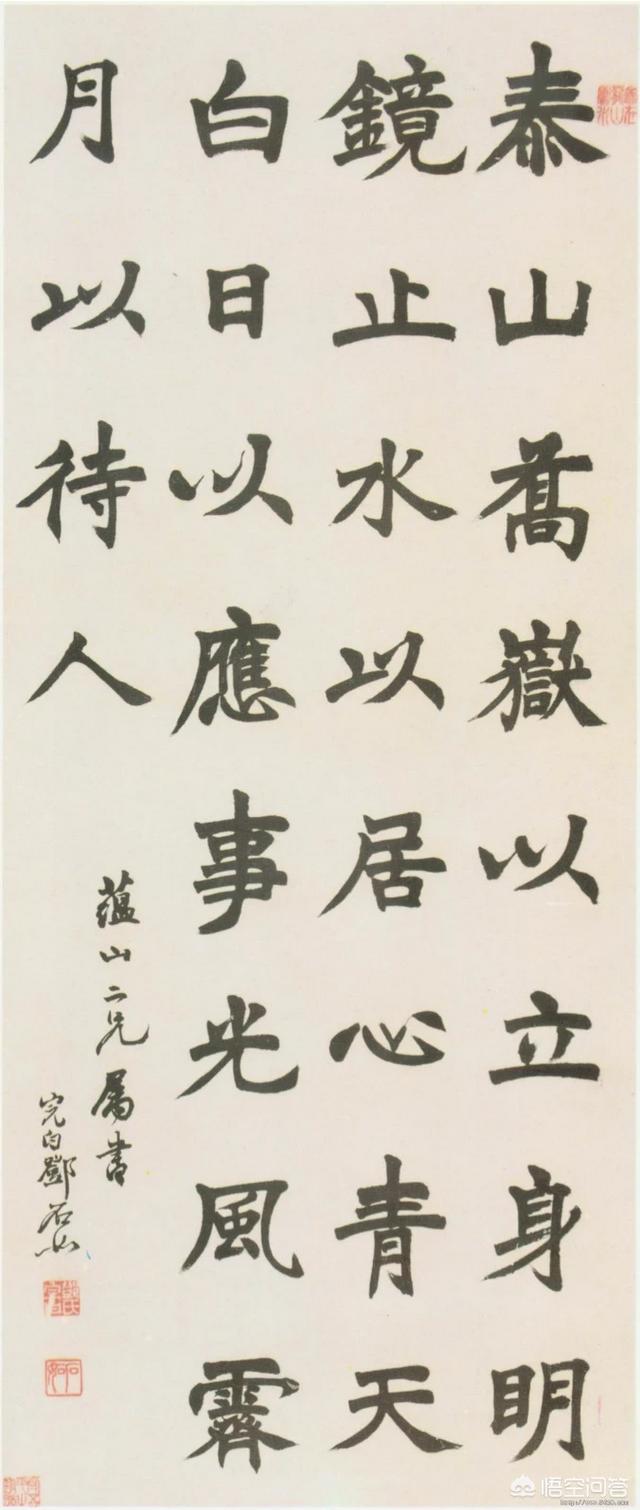 泰山喬嶽以立身明
鏡止水以居心青天
白日以應事光風霽
月以待人
蘊山二兄屬書
完白鄧石如
悟空问答